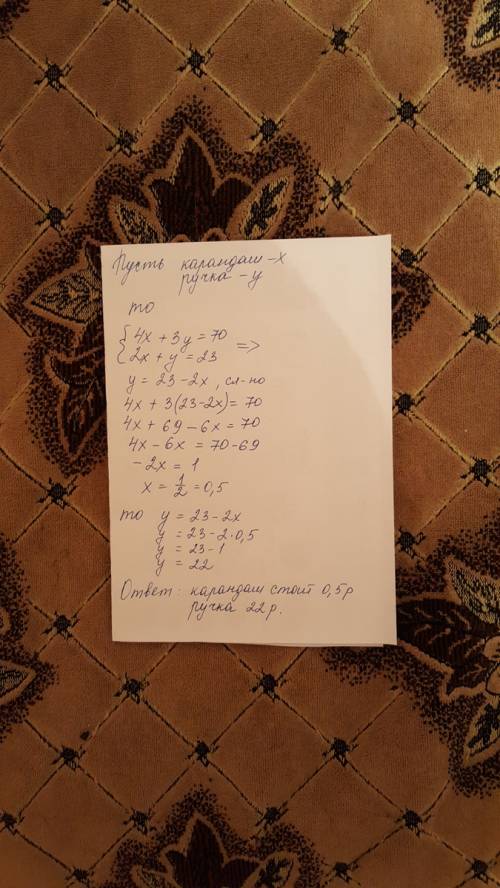 Пусть карандаш - х
ручка - у
то
{4х + 3у = 70
{2х + у = 23 =>
у = 23 - 2х, сл-но
4х + 3(23-2х) = 70
4х + 69 - 6х = 70
4х - 6х = 70 - 69
- 2х = 1
х = 1/2 = 0,5
то у = 23 - 2х
у = 23 - 2·0,5
у = 23 - 1
у = 22
Ответ: карандаш стоит 0,5р
ручка 22р.